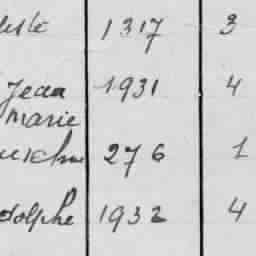 1317 3
Jean 1931 4
Marie
276 1
dolphe 1932 4